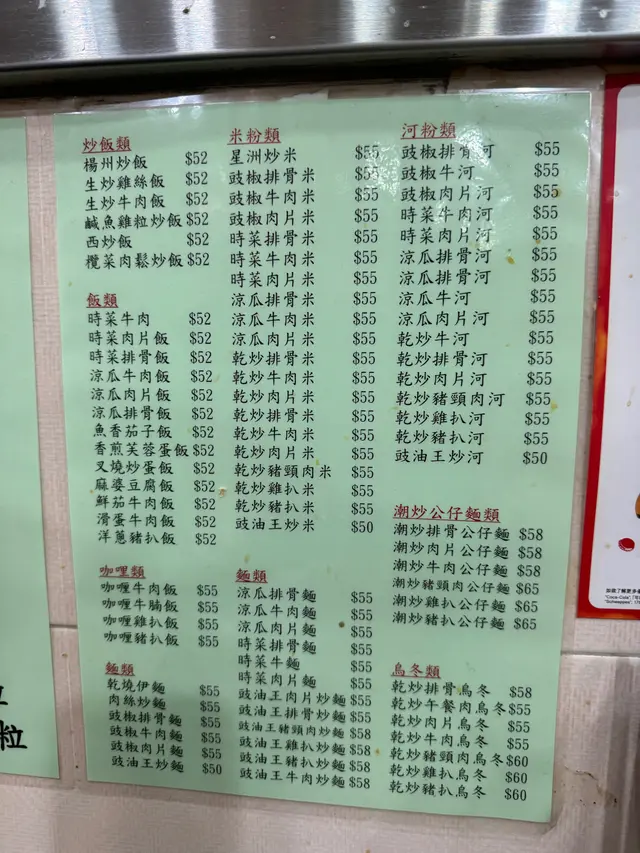 炒飯類
楊州炒飯 $52
生炒雞絲飯 $52
生炒牛肉飯 $52
鹹魚雞粒炒飯 $52
西炒飯 $52
欖菜肉鬆炒飯 $52
飯類
時菜牛肉 $52
時菜肉片飯 $52
時菜排骨飯 $52
涼瓜牛肉飯 $52
涼瓜肉片飯 $52
涼瓜排骨飯 $52
魚香茄子飯 $52
香煎芙蓉蛋飯 $52
叉燒炒蛋飯 $52
麻婆豆腐飯 $52
鮮茄牛肉飯 $52
滑蛋牛肉飯 $52
洋蔥豬扒飯 $52
咖喱類
咖喱牛肉飯 $55
咖喱牛腩飯 $55
咖喱雞扒飯 $55
咖喱豬扒飯 $55
麵類
乾燒伊麵 $55
肉絲炒麵 $55
豉椒排骨麵 $55
豉椒牛肉麵 $55
豉椒肉片麵 $55
豉油王炒麵 $50
米粉類
星洲炒米 $55
豉椒排骨米 $55
豉椒牛肉米 $55
豉椒肉片米 $55
時菜排骨米 $55
時菜牛肉米 $55
時菜肉片米 $55
涼瓜排骨米 $55
涼瓜牛肉米 $55
涼瓜肉片米 $55
乾炒排骨米 $55
乾炒牛肉米 $55
乾炒肉片米 $55
乾炒排骨米 $55
乾炒牛肉米 $55
乾炒肉片米 $55
乾炒豬頸肉米 $55
乾炒雞扒米 $55
乾炒豬扒米 $55
豉油王炒米 $50
麵類
涼瓜排骨麵 $55
涼瓜牛肉麵 $55
涼瓜肉片麵 $55
時菜排骨麵 $55
時菜牛麵 $55
時菜肉片麵 $55
豉油王肉片炒麵 $55
豉油王排骨炒麵 $55
豉油王豬頸肉炒麵 $58
豉油王雞扒炒麵 $58
豉油王豬扒炒麵 $58
豉油王牛肉炒麵 $58
河粉類
豉椒排骨河 $55
豉椒牛河 $55
豉椒肉片河 $55
時菜牛肉河 $55
時菜肉片河 $55
涼瓜排骨河 $55
涼瓜排骨河 $55
涼瓜牛河 $55
涼瓜肉片河 $55
乾炒牛河 $55
乾炒排骨河 $55
乾炒肉片河 $55
乾炒豬頸肉河 $55
乾炒雞扒河 $55
乾炒豬扒河 $55
豉油王炒河 $50
潮炒公仔麵類
潮炒排骨公仔麵 $58
潮炒肉片公仔麵 $58
潮炒牛肉公仔麵 $58
潮炒豬頸肉公仔麵 $65
潮炒雞扒公仔麵 $65
潮炒豬扒公仔麵 $65
烏冬類
乾炒排骨烏冬 $58
乾炒午餐肉烏冬 $55
乾炒肉片烏冬 $55
乾炒牛肉烏冬 $55
乾炒豬頸肉烏冬 $60
乾炒雞扒烏冬 $60
乾炒豬扒烏冬 $60
粒